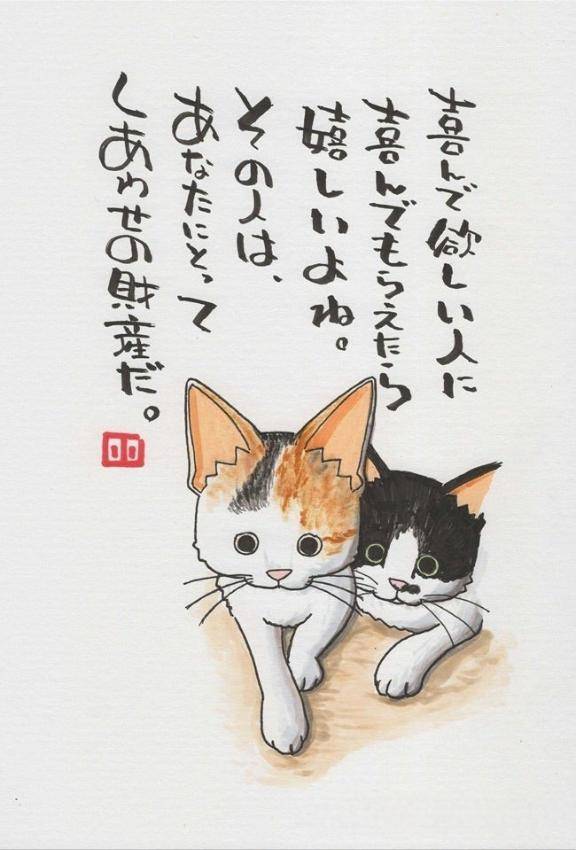 喜んで欲しい人に
喜んでもらえたら
嬉しいよね。
その人は、
あなたにとって
しあわせの財産だ。